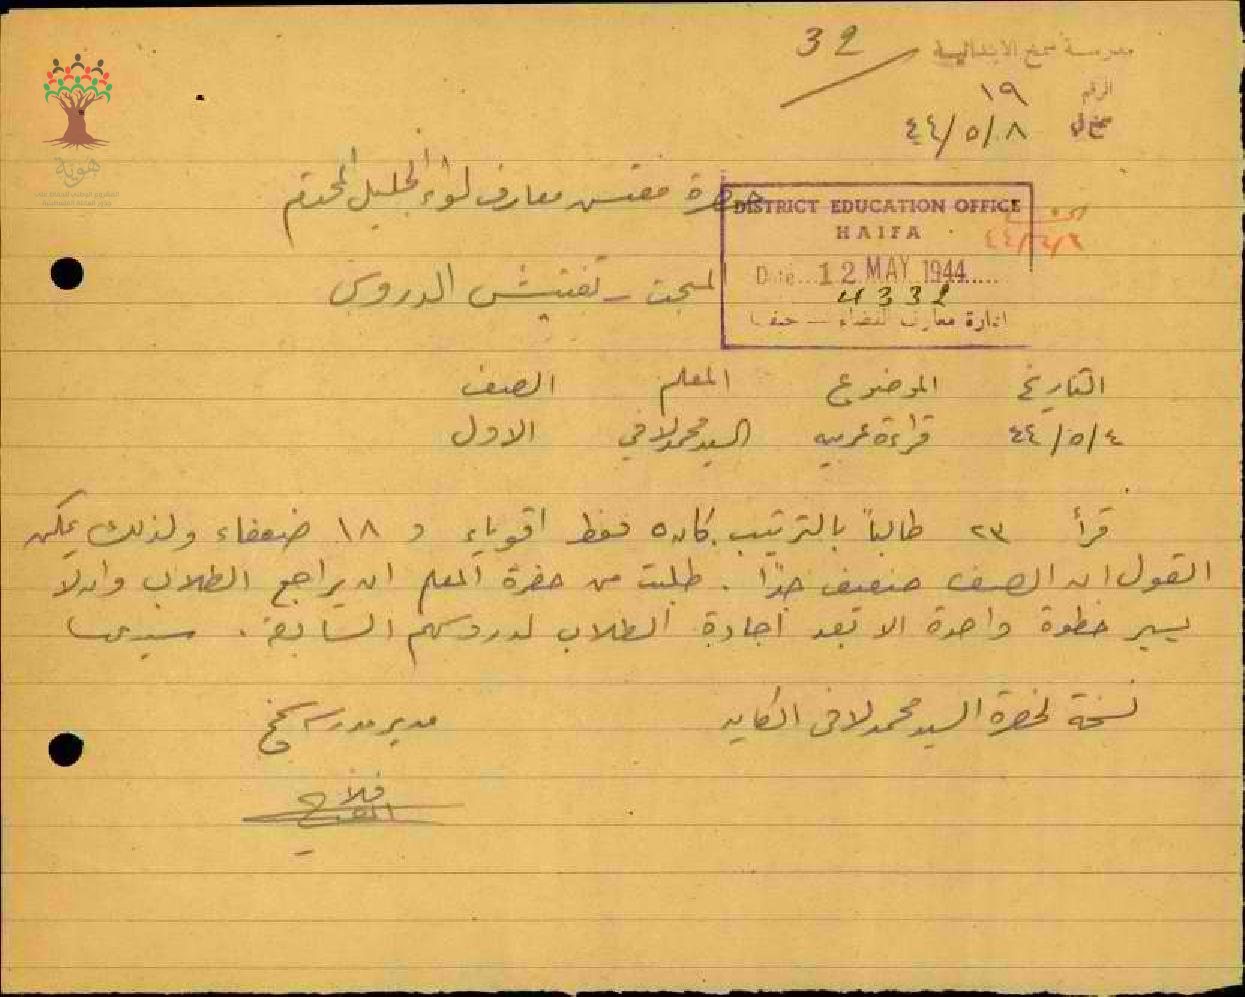 32
مدرسة سمخ الابتدائية
الرقم ١٩
سمخ في ٨/٥/٤٤
حضرة مفتش معارف لواء الجليل المحترم
DISTRICT EDUCATION OFFICE
HAIFA
Date 12 MAY 1944
4332
ادارة معارف القضاء — حيفا
المبحث - تفتيش الدروس
التاريخ الموضوع المعلم الصف
٤/٥/٤٤ قراءة عربيه السيد محمد لافي الاول
قرأ ٢٣ طالباً بالترتيب. كان ٥ فقط اقوياء و ١٨ ضعفاء ولذلك يمكن
القول ان الصف ضعيف جداً. طلبت من حضرة المعلم ان يراجع الطلاب وان لا
يسير خطوة واحدة الا بعد اجادة الطلاب لدروسهم السابقة.
نسخة لحضرة السيد محمد لافي الكايد
مدير مدرسة سمخ
فلاح
هوية